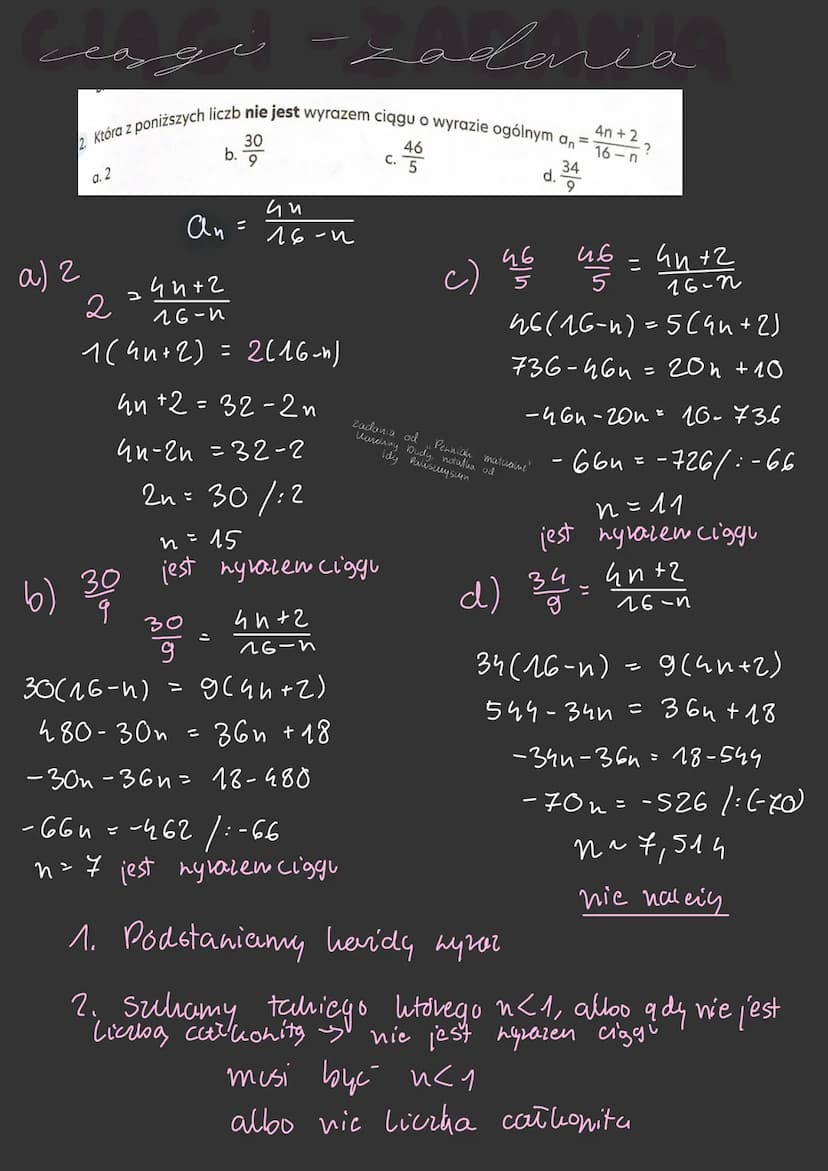 CIĄGI - ZADANIA
ciągi - zadania
2. Która z poniższych liczb nie jest wyrazem ciągu o wyrazie ogólnym aₙ = (4n + 2)/(16 − n)?
a. 2 b. 30/9 c. 46/5 d. 34/9
aₙ = 4n/(16-n)
a) 2
2 = (4n+2)/(16-n)
1(4n+2) = 2(16-n)
4n+2 = 32-2n
4n-2n = 32-2
2n = 30 /:2
n = 15
jest wyrazem ciągu
b) 30/9
30/9 = (4n+2)/(16-n)
30(16-n) = 9(4n+2)
480-30n = 36n+18
-30n-36n = 18-480
-66n = -462 /:-66
n = 7 jest wyrazem ciągu
c) 46/5 46/5 = (4n+2)/(16-n)
46(16-n) = 5(4n+2)
736-46n = 20n+10
-46n-20n = 10-736
-66n = -726/:-66
n = 11
jest wyrazem ciągu
d) 34/9 = (4n+2)/(16-n)
34(16-n) = 9(4n+2)
544-34n = 36n+18
-34n-36n = 18-544
-70n = -526 /:(-70)
n ~ 7,514
nie należy
zadania od
notatka od
1. Podstawiamy każdy wyraz
2. Szukamy takiego którego n<1, albo gdy nie jest
liczbą całkowitą → nie jest wyrazem ciągu
musi być n<1
albo nie liczba całkowita